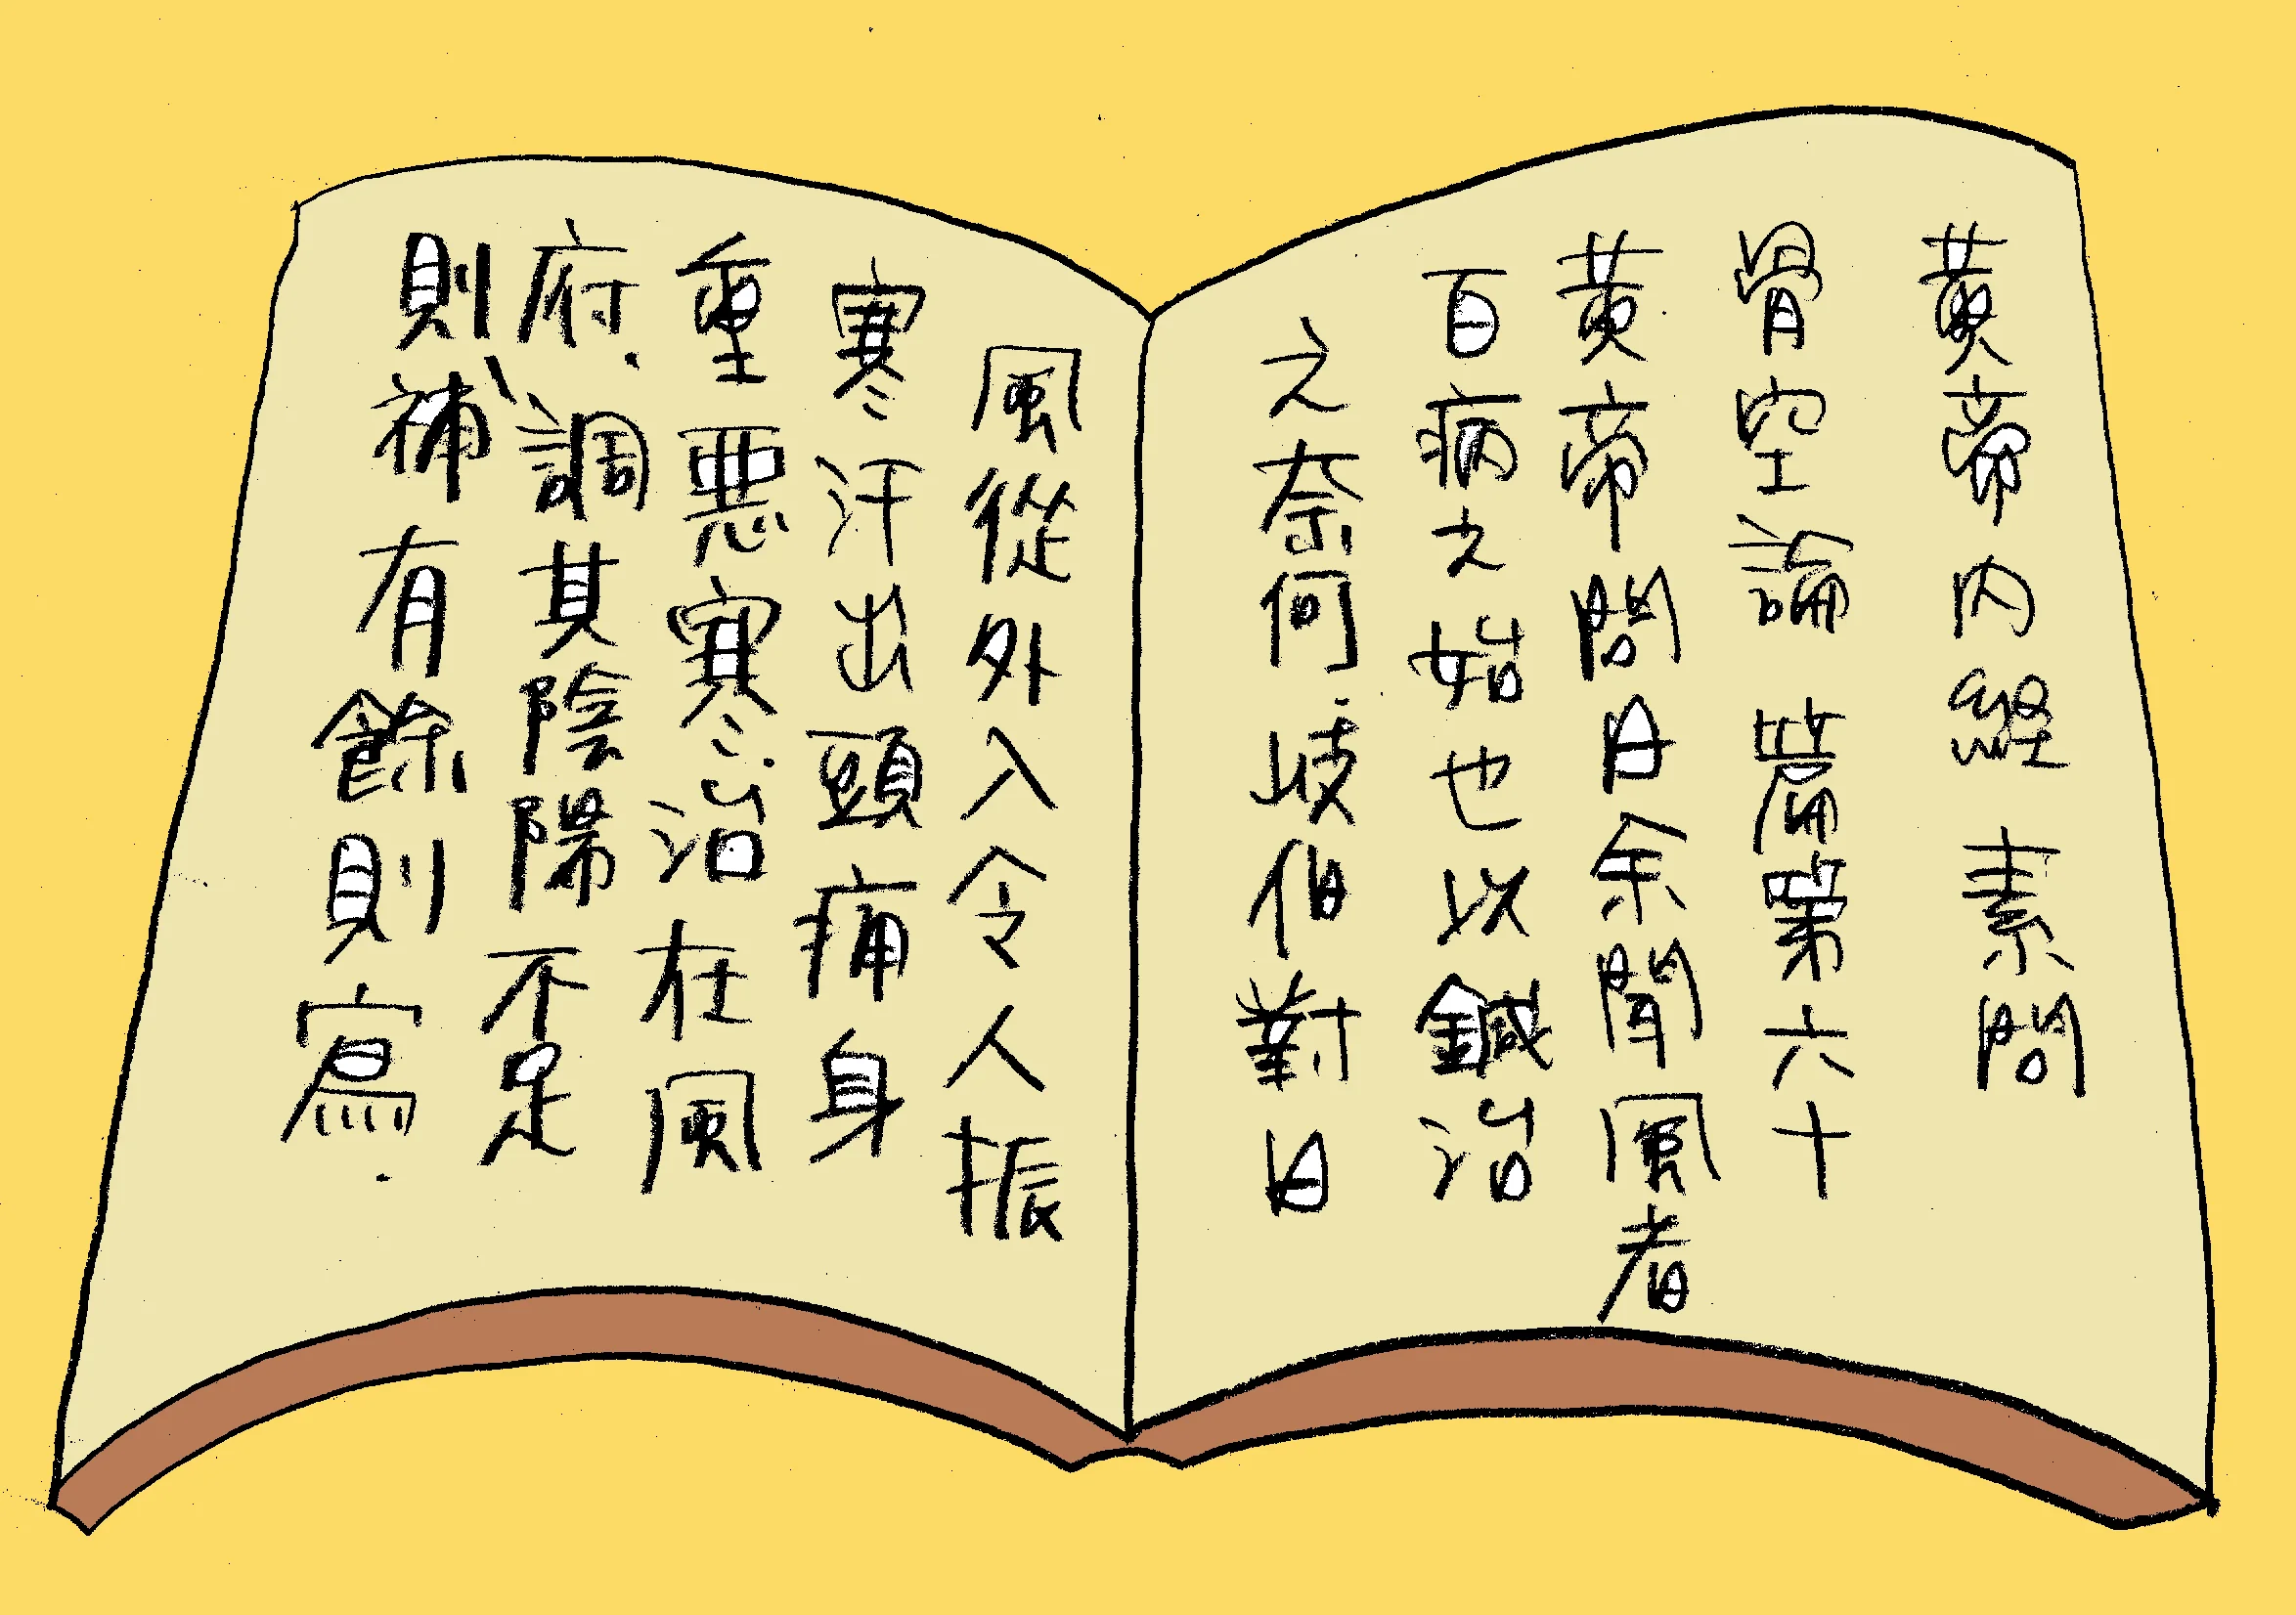 黃帝内經 素問
骨空論 篇第六十
黃帝問曰余聞風者
百病之始也以鍼治
之奈何.岐伯對曰
風從外入令人振
寒汗出頭痛身
重惡寒.治在風
府.調其陰陽不足
則補、有餘則寫.